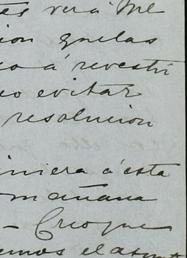 verá Mr
ion que las
o á revestir
o evitar
resolucion
iniera á esta
mañana
- Creo que
emos el asun